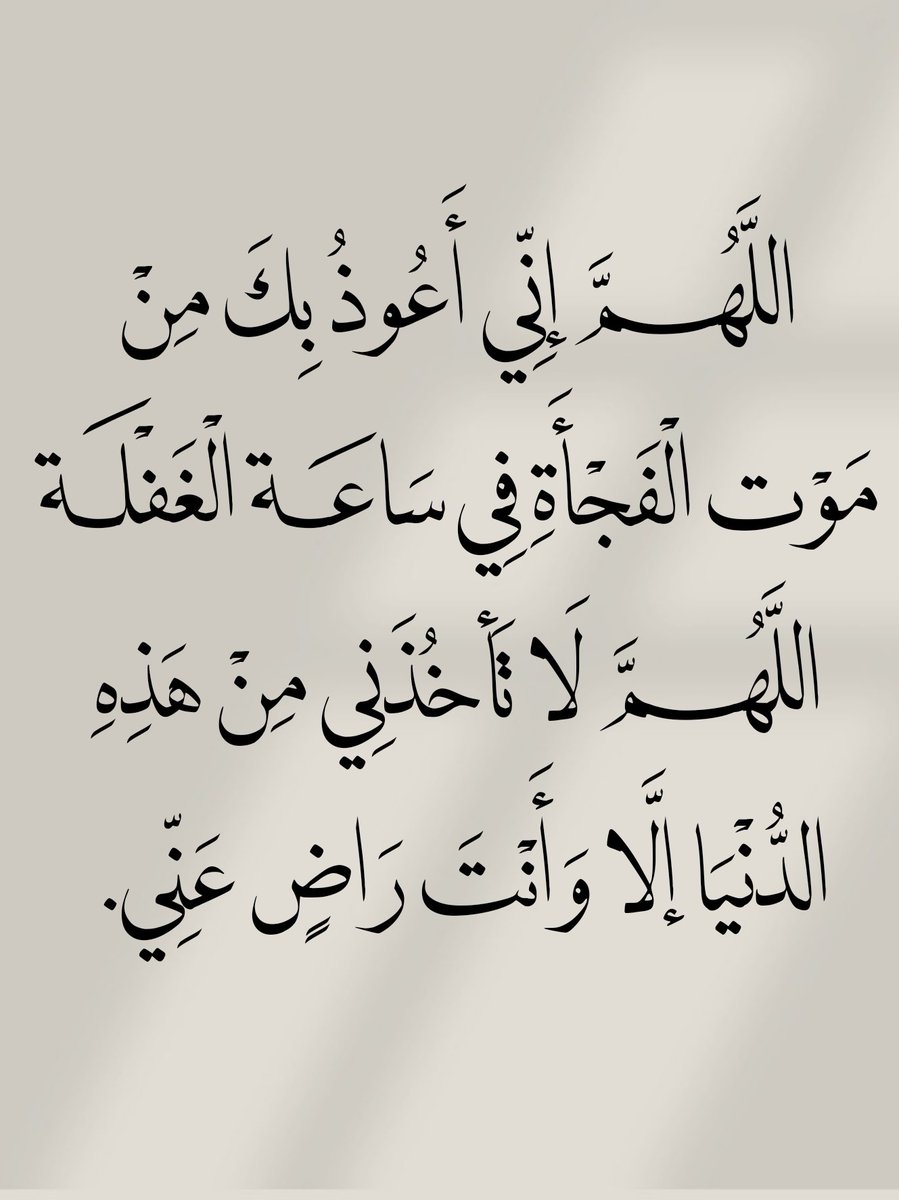 اللَّهُـمَّ إِنِّي أَعُوذُ بِكَ مِنْ
مَوْت الْفَجْأَةِ فِي سَاعَـة الْغَفْلَـة
اللَّهُـمَّ لَا تَأَخُذَنِي مِنْ هَذِهِ
الدُّنْيَا إلَّا وَأَنْتَ رَاضٍ عَنِّي.